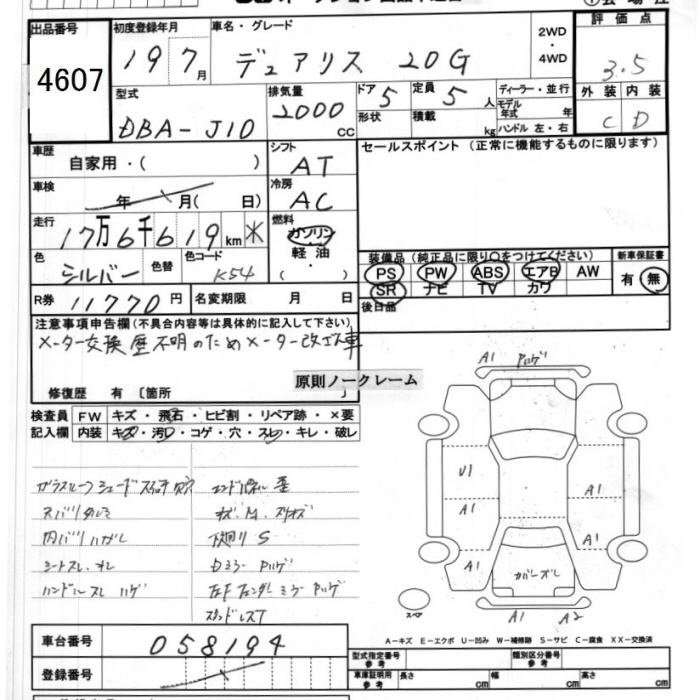 出品番号
4607
初度登録年月
19 7月
車名・グレード
デュアリス 20G
2WD
・
4WD
評価点
3.5
外装 内装
C D
型式
DBA-J10
排気量
2000 CC
ドア 5
形状
定員 5人
積載 kg
ディーラー・並行
モデル年式 年
ハンドル 左・右
車歴
自家用・( )
シフト
AT
セールスポイント(正常に機能するものに限ります)
車検
年 月( 日)
冷房
AC
走行
17万6千619km
燃料
ガソリン
軽油
・( )
色
シルバー
色替
色コード
K54
装備品(純正品に限り○をつけてください)
PS PW ABS エアB AW
SR ナビ TV カワ
新車保証書
有・無
R券 11770円
名変期限 月 日
後日品
注意事項申告欄(不具合内容等は具体的に記入して下さい)
メーター交換歴不明のためメーター改ざん車
修復歴 有〔箇所
原則ノークレーム
検査員
記入欄
FW キズ・飛石・ヒビ割・リペア跡・×要
内装 キズ・汚レ・コゲ・穴・スレ・キレ・破レ
内バリハガレ
シートスレ
ハンドルスレ ハゲ
下廻り S
A1
U1
A1
A1
A1
A1
A1
A1 A2
スペア
A-キズ E-エクボ U-凹み W-補修跡 S-サビ C-腐食 XX-交換済
車台番号
058194
登録番号
型式指定番号
参考
類別区分番号
参考
車庫証明用
参考
長さ cm 幅 cm 高さ cm